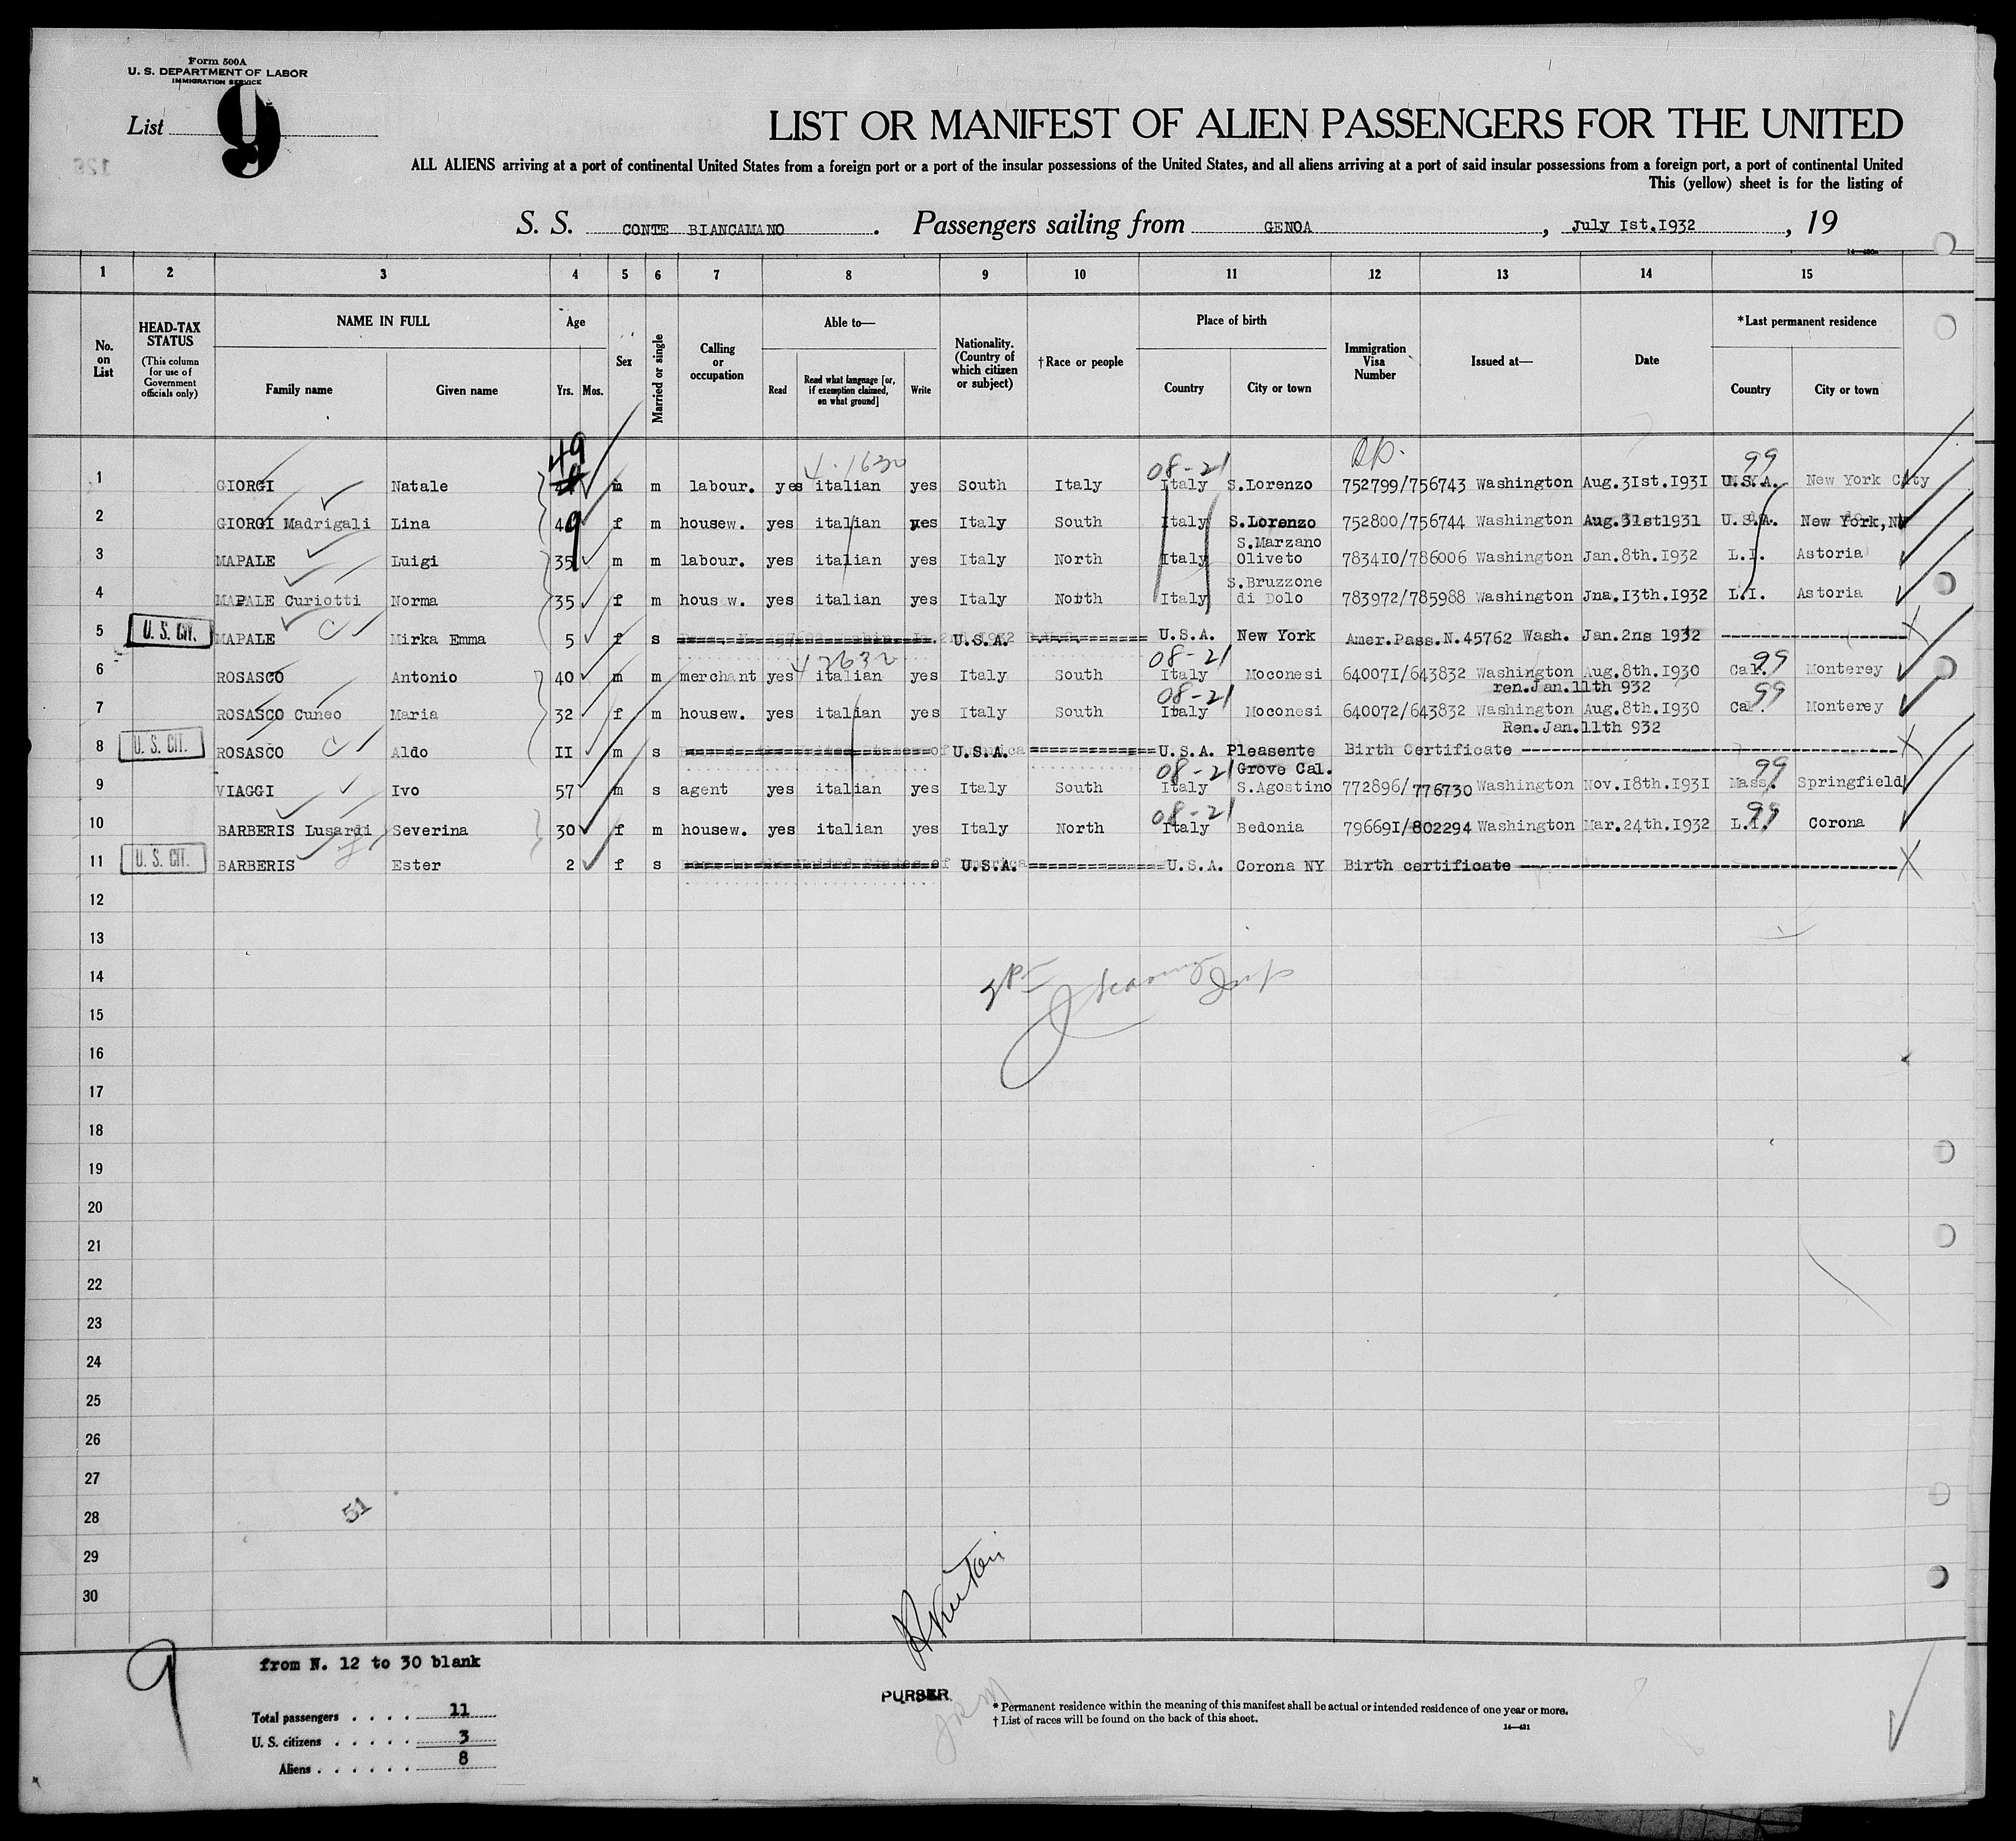 Form 500A
U. S. DEPARTMENT OF LABOR
IMMIGRATION SERVICE
List 9
LIST OR MANIFEST OF ALIEN PASSENGERS FOR THE UNITED
ALL ALIENS arriving at a port of continental United States from a foreign port or a port of the insular possessions of the United States, and all aliens arriving at a port of said insular possessions from a foreign port, a port of continental United
This (yellow) sheet is for the listing of
S. S. CONTE BIANCAMANO. Passengers sailing from GENOA, July 1st.1932, 19
1 2 3 4 5 6 7 8 9 10 11 12 13 14 15
No. on List
HEAD-TAX STATUS
(This column for use of Government officials only)
NAME IN FULL
Family name
Given name
Age
Yrs. Mos.
Sex
Married or single
Calling or occupation
Able to—
Read
Read what language [or, if exemption claimed, on what ground]
Write
Nationality. (Country of which citizen or subject)
†Race or people
Place of birth
Country
City or town
Immigration Visa Number
Issued at—
Date
*Last permanent residence
Country
City or town
49 08-21 99
1 GIORGI Natale m m labour. yes italian yes South Italy Italy S.Lorenzo 752799/756743 Washington Aug.31st.1931 U.S.A. New York City
2 GIORGI Madrigali Lina 49 f m housew. yes italian yes Italy South Italy S.Lorenzo 752800/756744 Washington Aug.31st1931 U.S.A. New York, NY
3 MAPALE Luigi 35 m m labour. yes italian yes Italy North Italy S.Marzano Oliveto 783410/786006 Washington Jan.8th.1932 L.I. Astoria
4 MAPALE Curiotti Norma 35 f m housew. yes italian yes Italy North Italy S.Bruzzone di Dolo 783972/785988 Washington Jna.13th.1932 L.I. Astoria
5 U. S. CIT. MAPALE Mirka Emma 5 f s U.S.A. U.S.A. New York Amer.Pass.N.45762 Wash. Jan.2ns 1932
08-21 99
6 ROSASCO Antonio 40 m m merchant yes italian yes Italy South Italy Moconesi 640071/643832 Washington Aug.8th.1930 Cal. Monterey
ren.Jan.11th 932
08-21 99
7 ROSASCO Cuneo Maria 32 f m housew. yes italian yes Italy South Italy Moconesi 640072/643832 Washington Aug.8th.1930 Cal. Monterey
Ren.Jan.11th 932
8 U. S. CIT. ROSASCO Aldo II m s U.S.A. U.S.A. Pleasente Grove Cal. Birth Certificate
08-21 99
9 VIAGGI Ivo 57 m s agent yes italian yes Italy South Italy S.Agostino 772896/776730 Washington Nov.18th.1931 Mass. Springfield
08-21 99
10 BARBERIS Lusardi Severina 30 f m housew. yes italian yes Italy North Italy Bedonia 796691/802294 Washington Mar.24th.1932 L.I. Corona
11 U. S. CIT. BARBERIS Ester 2 f s U.S.A. U.S.A. Corona NY Birth certificate
12
13
14
15
16
17
18
19
20
21
22
23
24
25
26
27
28
29
30
51
9
from N. 12 to 30 blank
Total passengers . . . . 11
U. S. citizens . . . . . 3
Aliens . . . . . . 8
PURSER
* Permanent residence within the meaning of this manifest shall be actual or intended residence of one year or more.
† List of races will be found on the back of this sheet.
14—431